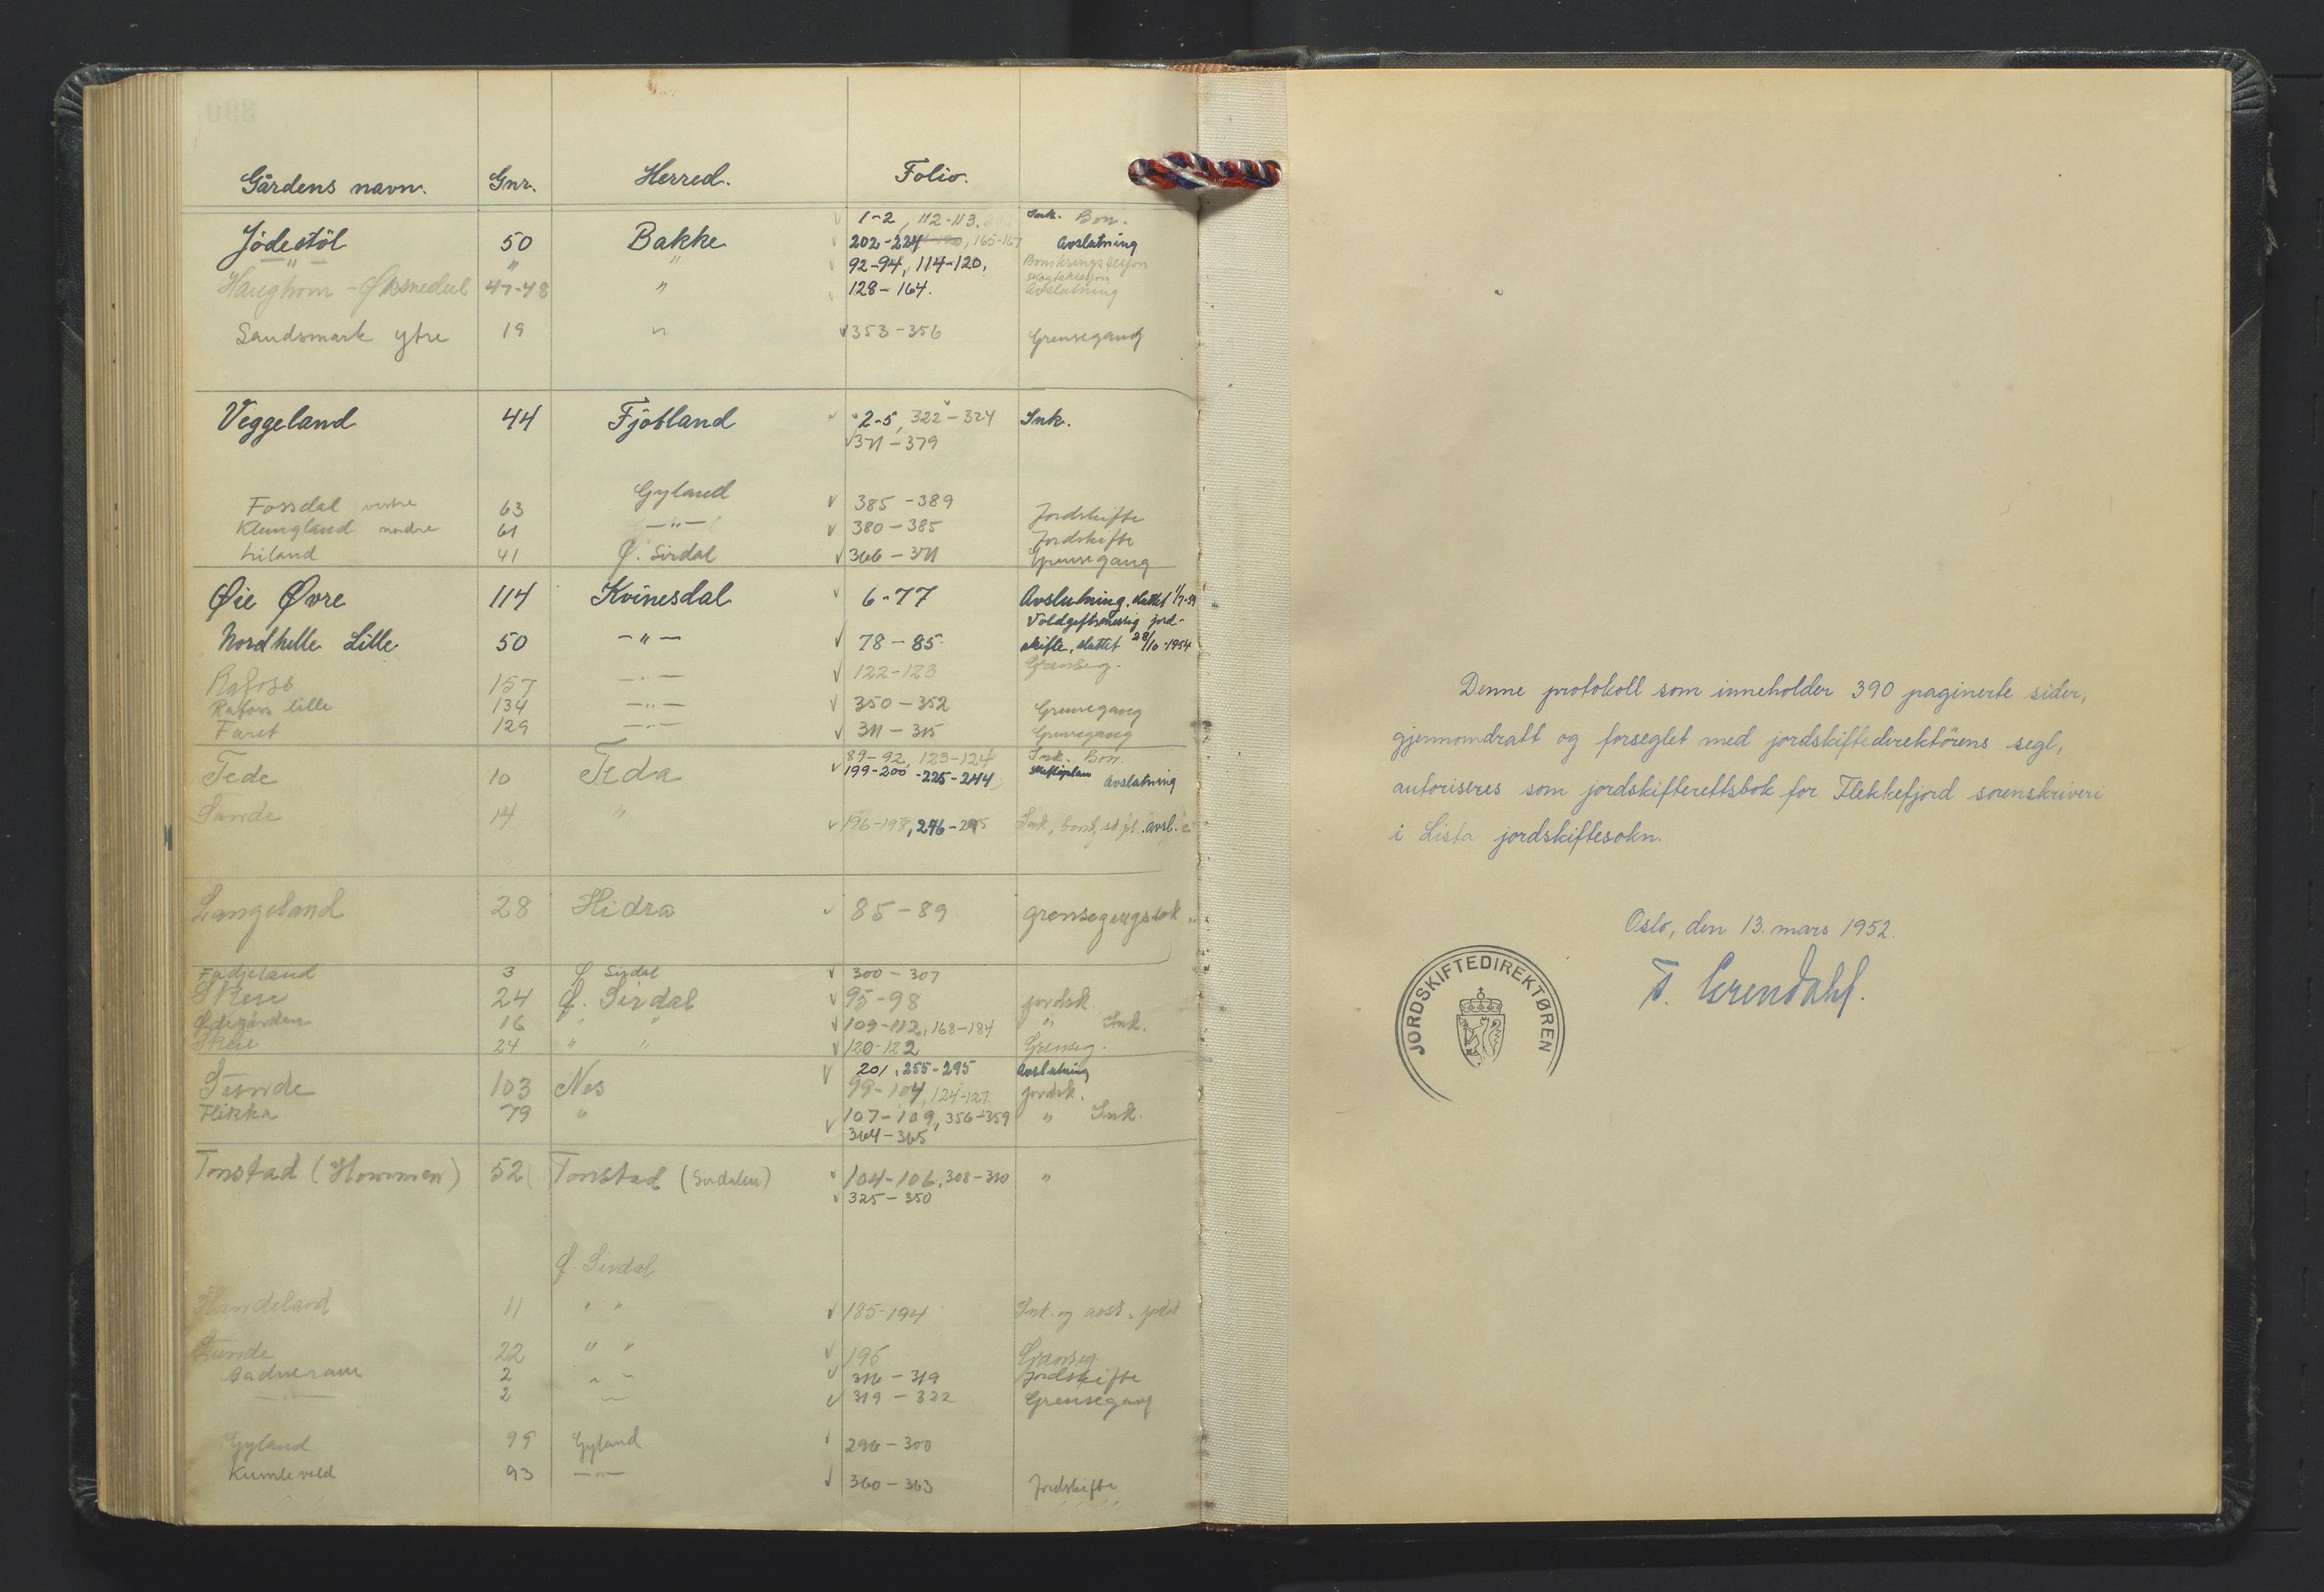 Gårdens navn. Gnr. Herred. Folio.
1-2, 112-113, Ink. Bon.
Jödestöl 50 Bakke 202-224, 165-167 Avslutning
" " " 92-94, 114-120, Boniteringslesjon
Haughom - Øksnedal 47-48 " 128-164. Avslutning
Sandsmark ytre 19 " 353-356 Grensegang
Veggeland 44 Fjotland 2-5, 322-324 Ink.
371-379
Gyland
Fossdal vestre 63 385-389 Jordskifte
Klungland nedre 61 -"- 380-385 Jordskifte
Liland 41 Ø. Sirdal 366-371 Grensegang
Øie Øvre 114 Kvinesdal 6-77 Avslutning, sluttet 1/7-54
Voldgiftsmessig jord-
Nordhelle Lille 50 -"- 78-85 skifte, sluttet 28/10-1954
Rafoss 157 -"- 122-123 Grenseg.
Rafoss lille 134 -"- 350-352 Grensegang
Faret 129 -"- 311-315 Grensegang
89-92, 123-124 Ink. Bon.
Tede 10 Feda 199-200-225-244 Skifteplan Avslutning
Sande 14 " 196-198, 246- Ink, bonit, avsl.
Langeland 28 Hidra 85-89 grensegangssak
Fidjeland 3 Ø Sirdal 300-307
Skeie 24 Ø. Sirdal 95-98 jordsk.
Ødegården 16 " " 109-112, 168-184 " Ink.
Skeie 24 " " 120-122 Grenseg.
201, 255-295 Avslutning
Tunde 103 Nes 99-104, 124-127. jordsk.
Flikka 79 " 107-109, 356-359 " Ink.
364-365
Tonstad (Hommen) 52 Tonstad (Sirdalen) 104-106, 308-310 "
325-350
Ø. Sirdal
Handeland 11 " " 185-194 Ink. og avsl. jordsk
Lunde 22 " " 195 Grenseg
Ådneram 2 " " 316-319 Jordskifte
-"- 2 -"- 319-322 Grensegang
Gyland 99 Gyland 296-300
Kumlevold 93 -"- 360-363 Jordskifte
Denne protokoll som inneholder 390 paginerte sider,
gjennomdratt og forseglet med jordskiftedirektörens segl,
autoriseres som jordskifterettsbok for Flekkefjord sorenskriveri
i Lista jordskiftesokn.
Oslo, den 13. mars 1952.
T. Grendahl.
JORDSKIFTEDIREKTØREN